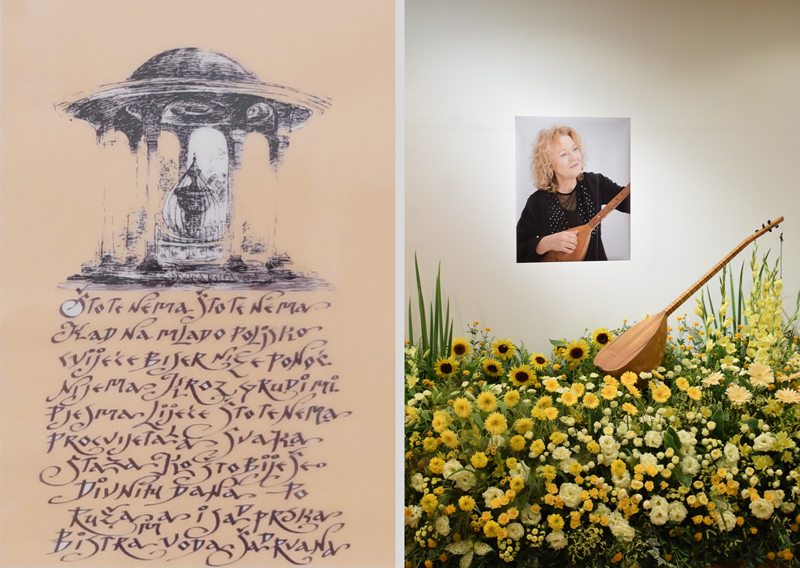 Što te nema što te nema
Kad na mlado poljsko
cvijeće biser niže ponoć
nijema. Kroz grudi mi
pjesma lijeće što te nema
procvijetala svaka
staza ko što biješe
divnih dana Po
ružama i sad prska
bistra voda šadrvana